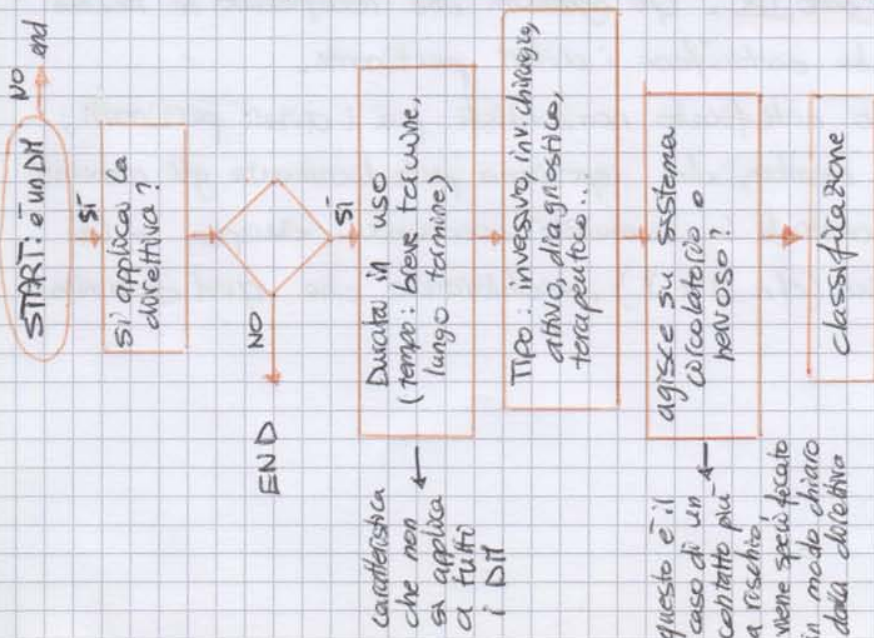 START: è un DM
NO
end
sì
si applica la
direttiva?
sì
NO
END
Durata in uso
(tempo: breve termine,
lungo termine)
caratteristica
che non
si applica
a tutti
i DM
Tipo: invasivo, inv. chirurgico,
attivo, diagnostico,
terapeutico..
agisce su sistema
circolatorio o
nervoso?
questo è il
caso di un
contatto più
a rischio
viene specificato
in modo chiaro
dalla direttiva
classificazione